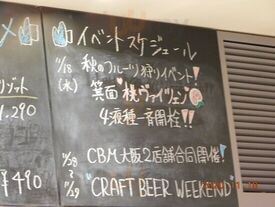 イベントスケジュール
11/18 秋のフルーツ狩りイベント!
(水) 箕面 桃ヴァイツェン
4液種一斉開栓!!
11/28 CBM大阪2店舗合同開催!
11/29 "CRAFT BEER WEEKEND"
ゾット
1,290
¥490